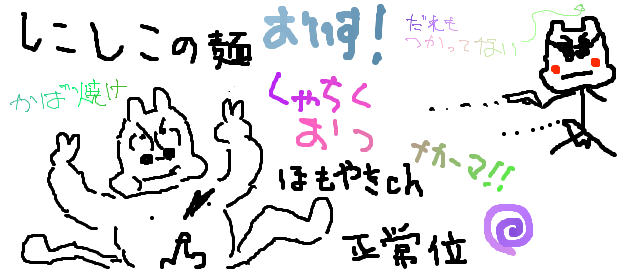 しこしこの麺
おいす!
だれも
つかってない
かばう焼け
くゃちく
おつ
ナカーマ!!
ほもやきch
正常位